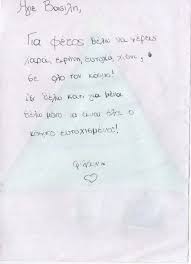 Άγιε Βασίλη,
Για φέτος θέλω να φέρεις
χαρά, ειρήνη, ευτυχία,
σε όλο τον κόσμο!
θέλω κάτι για μένα
θέλω μόνο να είναι όλος ο
κόσμος ευτυχισμένος!